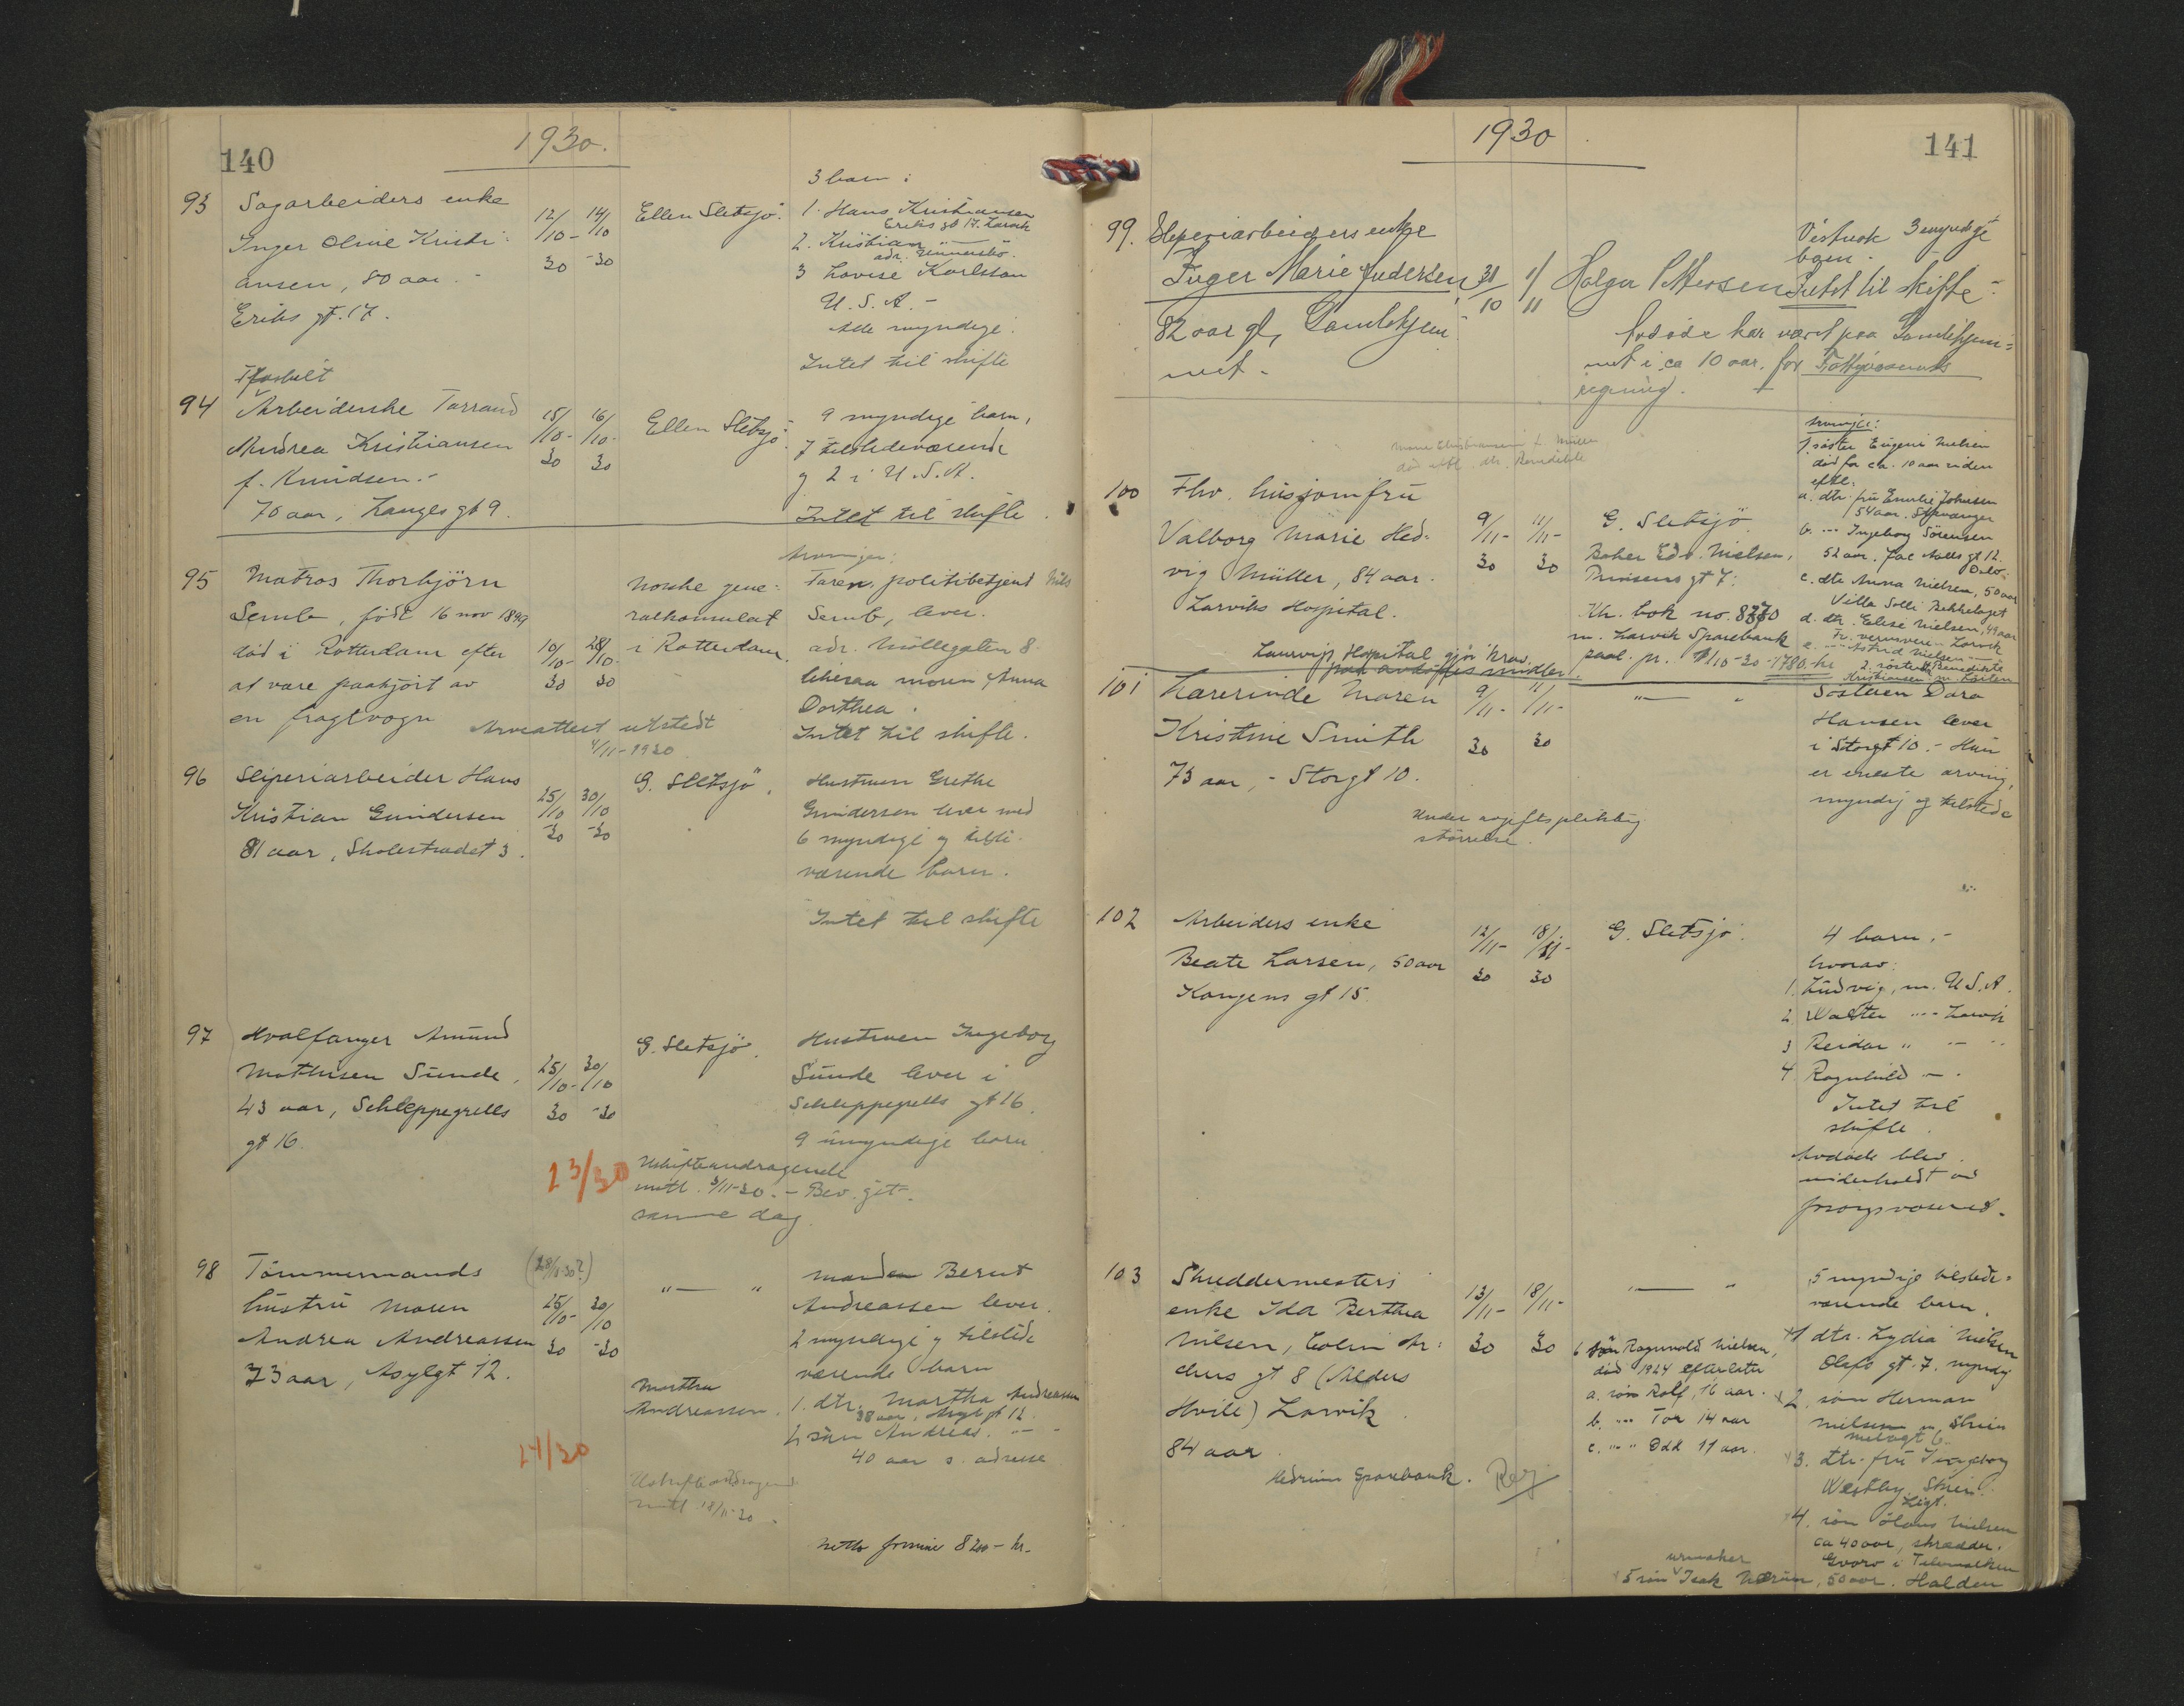 140
1930.
93 Sagarbeiders enke
Inger Oline Kristi-
ansen, 80 aar.
Eriks gt. 17.
12/10-30
14/10-30
Ellen Sletsjö.
3 barn:
1. Hans Kristiansen
Eriks gt 17. Larvik
2. Kristian
adr.
3 Lovise Karlsson
U.S.A.-
Alle myndige.
Intet til skifte
94 Arbeiderske
Andrea Kristiansen
f. Knudsen.-
70 aar, Langes gt 9.
15/10-30
16/10-30
Ellen Sletsjö.
9 myndige barn,
7 tilstedeværende
og 2 i U.S.A.
Intet til skifte.
95 Matros Thorbjörn
Semb, född 16 nov 1899
död i Rotterdam efter
at være paakjört av
en fragtvogn
10/10-30
28/10-30
norske gene-
ralkonsulat
i Rotterdam.
Arvinger:
Faren, politibetjent Nils
Semb, lever.
adr. Möllegaten 8.
likesaa moren Anna
Dorthea.
Intet til skifte.
Arveattest utstedt
4/11-1930
96 Sliperiarbeider Hans
Kristian Gundersen
81 aar, Skolestrædet 3.
25/10-30
30/10-30
G. Sletsjö.
Hustruen Grethe
Gundersen lever med
6 myndige og tilste-
værende barn.
Intet til skifte
97 Hvalfanger Amund
Mathisen Sunde,
43 aar, Schleppegrells
gt 16.
25/10-30
30/10-30
G. Sletsjö.
Hustruen Ingeborg
Sunde lever i
Schleppegrells gt 16.
9 umyndige barn
23/30
Uskifteandragende
mott. 3/11-30. - Bev. git
samme dag.
98 Tömmermands
hustru Maren
Andrea Andreassen
73 aar, Asylgt 12.
25/10-30
30/10-30
manden Bernt
Andreassen lever.
2 myndige og tilstede
værende barn
1. dtr. Martha Andreassen
38 aar, Asylgt 12.
2 sön Andreas.
40 aar s. adresse
Martha
Andreassen.
24/30
Uskifteandragende
mott 18/11-30.
netto formue 8200- kr.
141
1930
99. Sliperiarbeiders enke
Inger Marie Andersen,
82 aar gl, Gamlehjem-
met-
31/10
1/11
Helga Pettersen
Vistnok 3 myndige
barn.
Intet til skifte.
Avdöde har været paa Gamlehjem-
met i ca 10 aar, for Fattigvæsenets
regning.
100 Fhv. husjomfru
Valborg Marie Hed-
vig Müller, 84 aar.
Larviks Hospital.
9/11-30
11/11-30
G. Sletsjö
Baker Edv. Nielsen,
Prinsens gt 7.
m. Larvik Sparebank
Arvinger:
1. söster Eugeni Nielsen
död for ca. 10 aar siden
efttl.
a. dtr. fru Emilie Johnsen
54 aar. Stavanger
b. --- Ingeborg Sörensen
52 aar, Oslo.
c. dtr Anna Nielsen, 50 aar
Villa Solli Bekkelaget
d. dtr. Elise Nielsen, 49 aar
Larvik
e. --- Astrid Nielsen
Larvigs Hospital gjör krav
paa avdödes midler.
101 Lærerinde Maren
Kristine Smith
73 aar, - Storgt 10.
9/11-30
11/11-30
Sösteren Dora
Hansen lever
i Storgt 10. - Hun
er eneste arving,
myndig og tilstede
Under avgiftspliktig
störrelse.
102 Arbeiders enke
Beate Larsen, 50 aar
Kongens gt 15.
12/11-30
18/11-30
G. Sletsjö.
4 barn.-
hvorav:
1. Ludvig, m. U.S.A.
2. Walter --- Larvik
3 Reidar
4. Ragnhild
Intet til
skifte.
Avdöde blev
underholdt av
forsorgsvæsenet.
103 Skreddermesters
enke Ida Berthea
Nilsen, Colin Ar-
chers gt 8 (Alders
Hvile) Larvik
84 aar.
13/11-30
18/11-30
Hedrum Sparebank.
5 myndige tilstede-
værende barn.
1 dtr. Lydia Nilsen
Olafs gt. 7. myndig
2. sön Herman
Nielsen
3. dtr. fru Ingeborg
Westby, Skien.
4. sön Olaus Nielsen
ca 40 aar, skrædder.
i Telemarken
urmaker
5 sön Isak 50 aar. Halden
6 sön Ragnvald Nielsen,
död 1924 efterlater
a. sön Rolf, 16 aar.
b. --- Tor 14 aar
c. --- Odd 11 aar.